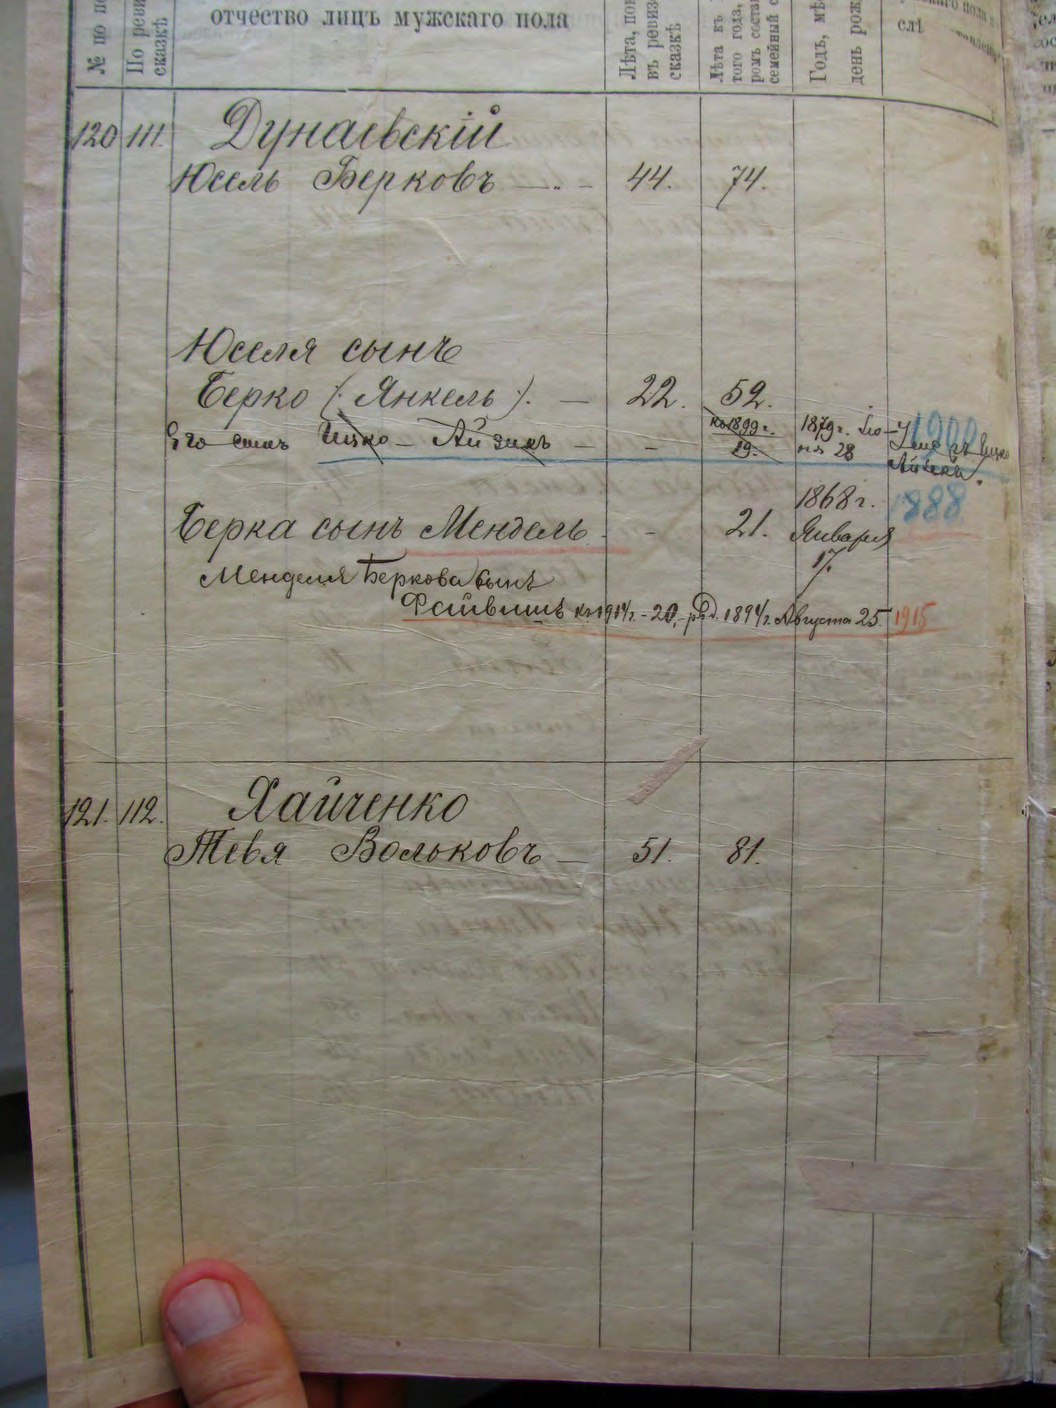 № по по
По ревиз
сказкѣ
отчество лицъ мужскаго пола
Лѣта, пок
въ ревиз
сказкѣ
Лѣта къ
того года,
ромъ состав
семейный с
Годъ, мѣ
день рож
слѣ
120 111. Дунаевскій
Юсель Берковъ 44. 74.
Юселя сынъ
Берко (Янкель). — 22. 52.
Его сынъ Ицко – Айзикъ – - къ 1899 г. 19. 1879 г. Iю-
ня 28
1900
Айзекъ.
Берка сынъ Мендель. - 21. 1868 г.
Января
17.
1888
Менделя Беркова сынъ
Файвишъ къ 1914 г. - 20, - род. 1894 г. Августа 25 1915
121. 112. Хайченко
Тевя Вольковъ — 51. 81.